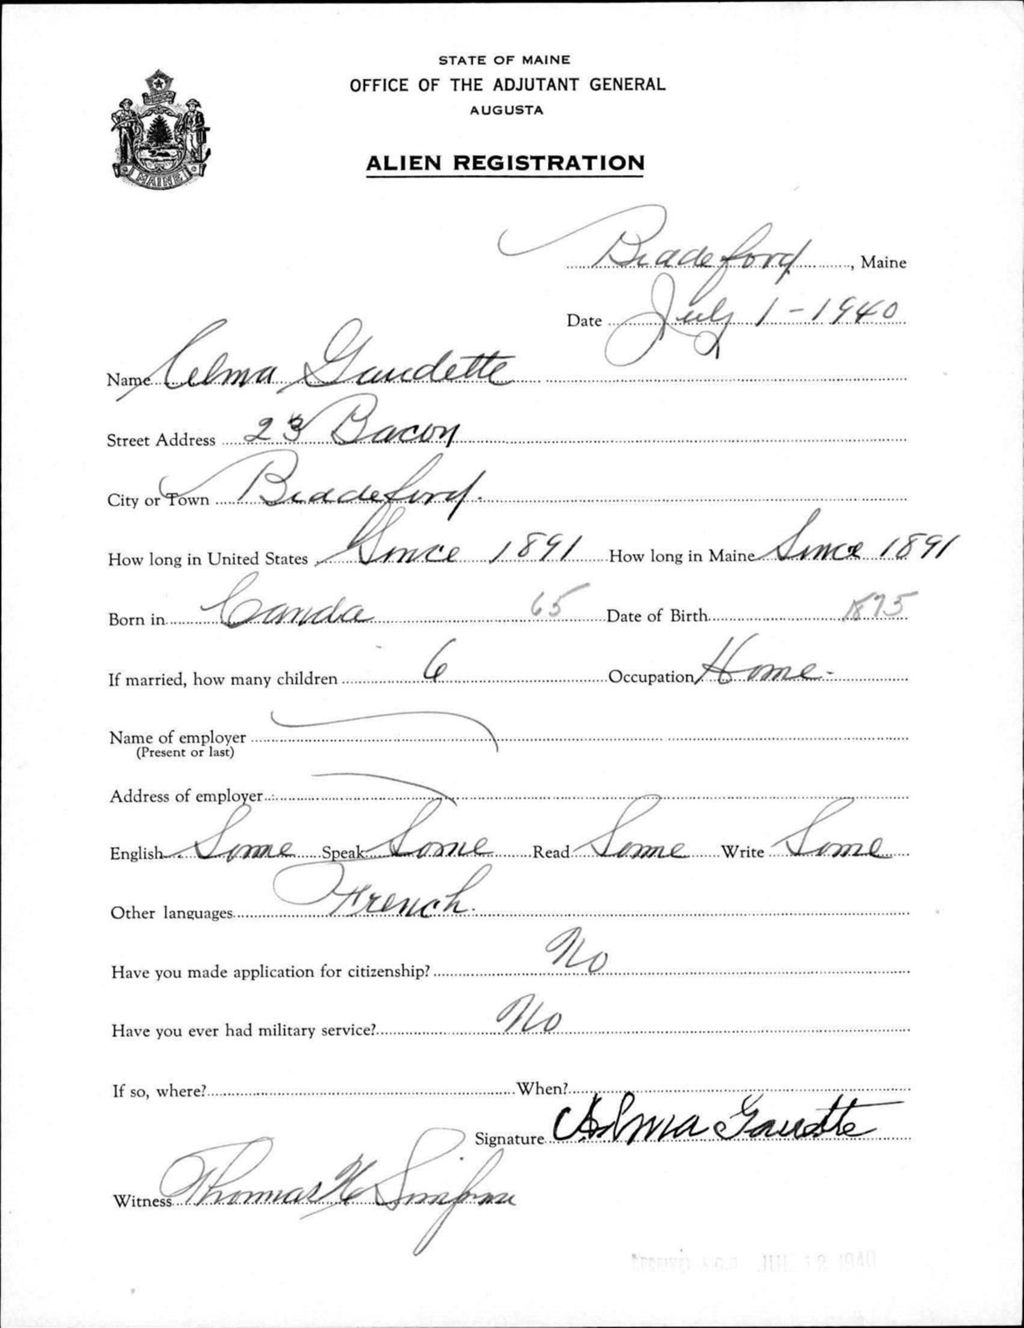 STATE OF MAINE
OFFICE OF THE ADJUTANT GENERAL
AUGUSTA
MAINE
ALIEN REGISTRATION
Biddeford, Maine
Date July 1-1940
Name Celma Gaudette
Street Address 23 Bacon
City or Town Biddeford.
How long in United States Since 1891 How long in Maine Since 1891
Born in Canda 65 Date of Birth 1875
If married, how many children 6 Occupation Home-
Name of employer
(Present or last)
Address of employer
English Some Speak Some Read Some Write Some
Other languages French.
Have you made application for citizenship? No
Have you ever had military service? No
If so, where? When?
Signature Gaudette
Witness Thomas H Simpson